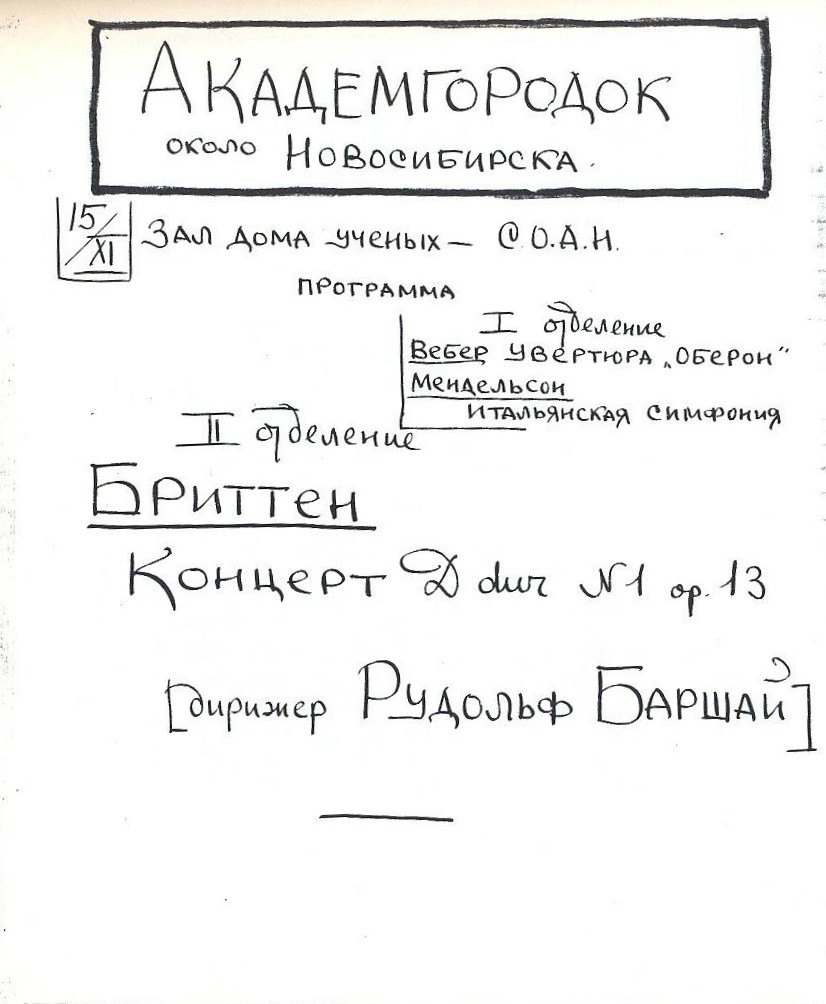 АКАДЕМГОРОДОК
около НОВОСИБИРСКА.
15/XI Зал дома ученых — С.О.А.Н.
ПРОГРАММА
I отделение
Вебер увертюра „Оберон"
Мендельсон
итальянская симфония
II отделение
Бриттен
Концерт D dur N1 op. 13
[дирижер Рудольф Баршай]